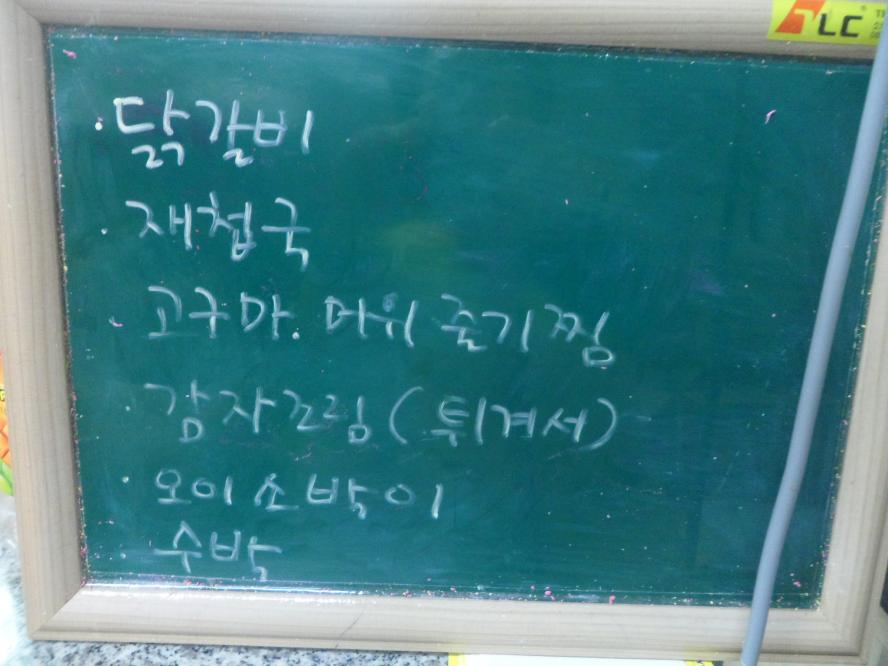 LC
· 닭갈비
· 재첩국
고구마. 머위 줄기찜
· 감자조림 (튀겨서)
· 오이소박이
· 수박